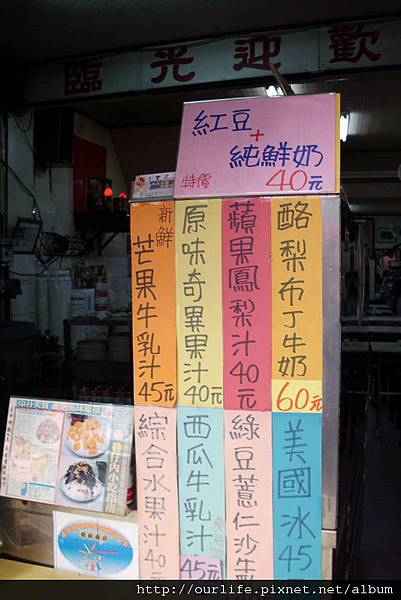 歡迎光臨
紅豆
+
純鮮奶
特價 40元
新鮮
芒果牛乳汁45元
原味奇異果汁40元
蘋果鳳梨汁40元
酪梨布丁牛奶
60元
綜合水果汁40元
西瓜牛乳汁
45元
綠豆薏仁沙牛
美國冰45
巷內小吃
http://ourlife.pixnet.net/album